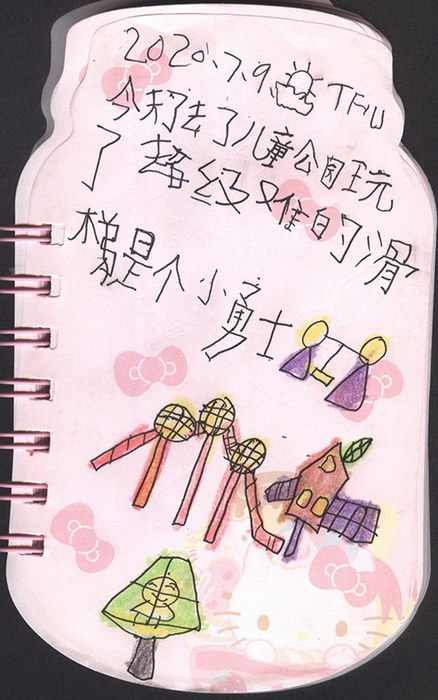 2020.7.9. THU
今天去了儿童公园玩
了超级难的滑
梯是个小勇士